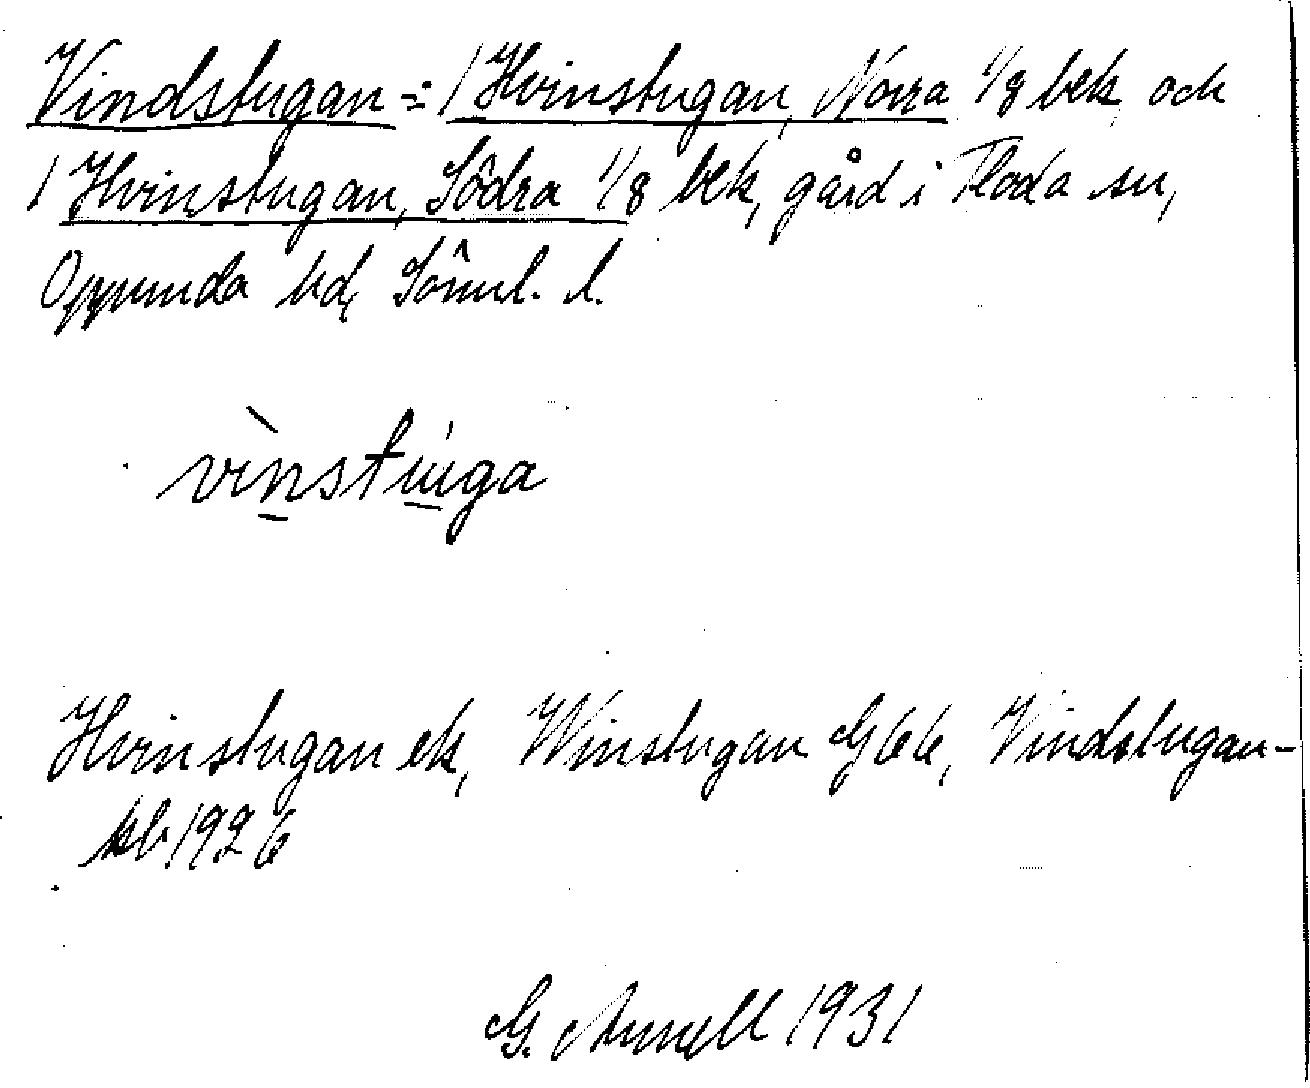 Vindstugan = 1 Hvinstugan, Norra 1/8 bek och
1 Hvinstugan, Södra 1/8 bek, gård i Floda sn,
Oppunda hd, Söml. l.
vìnstúga
Hvinstugan ek, Winstugan Gek, Vindstugan
kb 1926
G. Annell 1931